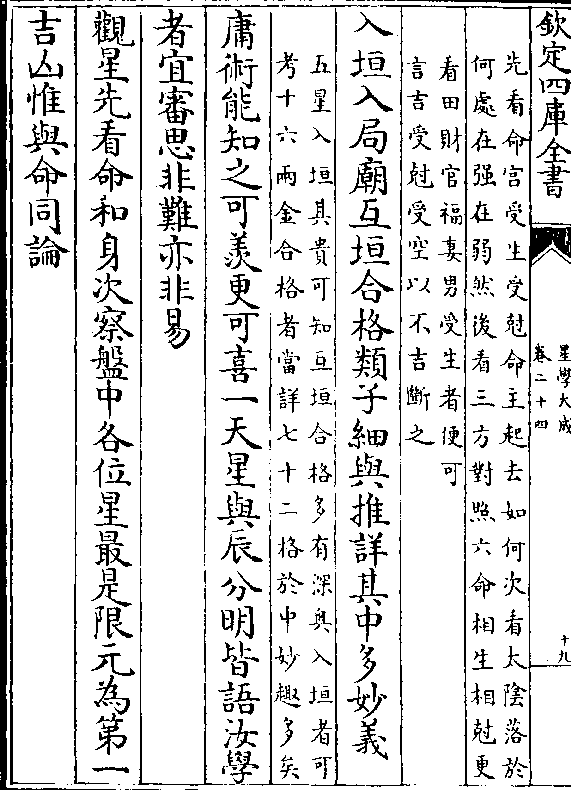 欽定四庫全書
星學大成
卷二十四
十九
先看命宫受生受尅命主起去如何次看太陰落於
何處在强在弱然後看三方對照六命相生相尅更
看田財官福妻男受生者便可
言吉受尅受空以不吉斷之
入垣入局廟互垣合格類子細與推詳其中多妙義
五星入垣其貴可知互垣合格多有深奥入垣者可
考十六兩金合格者當詳七十二格於中妙趣多矣
庸術能知之可羨更可喜一天星與辰分明皆語汝學
者宜審思非難亦非易
觀星先看命和身次察盤中各位星最是限元為第一
吉凶惟與命同論